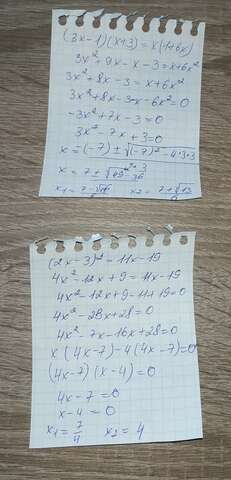 (3x-1)(x+3)=x(1+6x)
3x²+9x-x-3=x+6x²
3x²+8x-3=x+6x²
3x²+8x-3-x-6x²=0
-3x²+7x-3=0
3x²-7x+3=0
x=-(-7)±√(-7)²-4·3·3
x=7±√49-36
x₁=7-√13 x₂=7+√13
(2x-3)²=11x-19
4x²-12x+9=11x-19
4x²-12x+9-11x+19=0
4x²-23x+28=0
4x²-7x-16x+28=0
x(4x-7)-4(4x-7)=0
(4x-7)(x-4)=0
4x-7=0
x-4=0
x₁=7/4 x₂=4